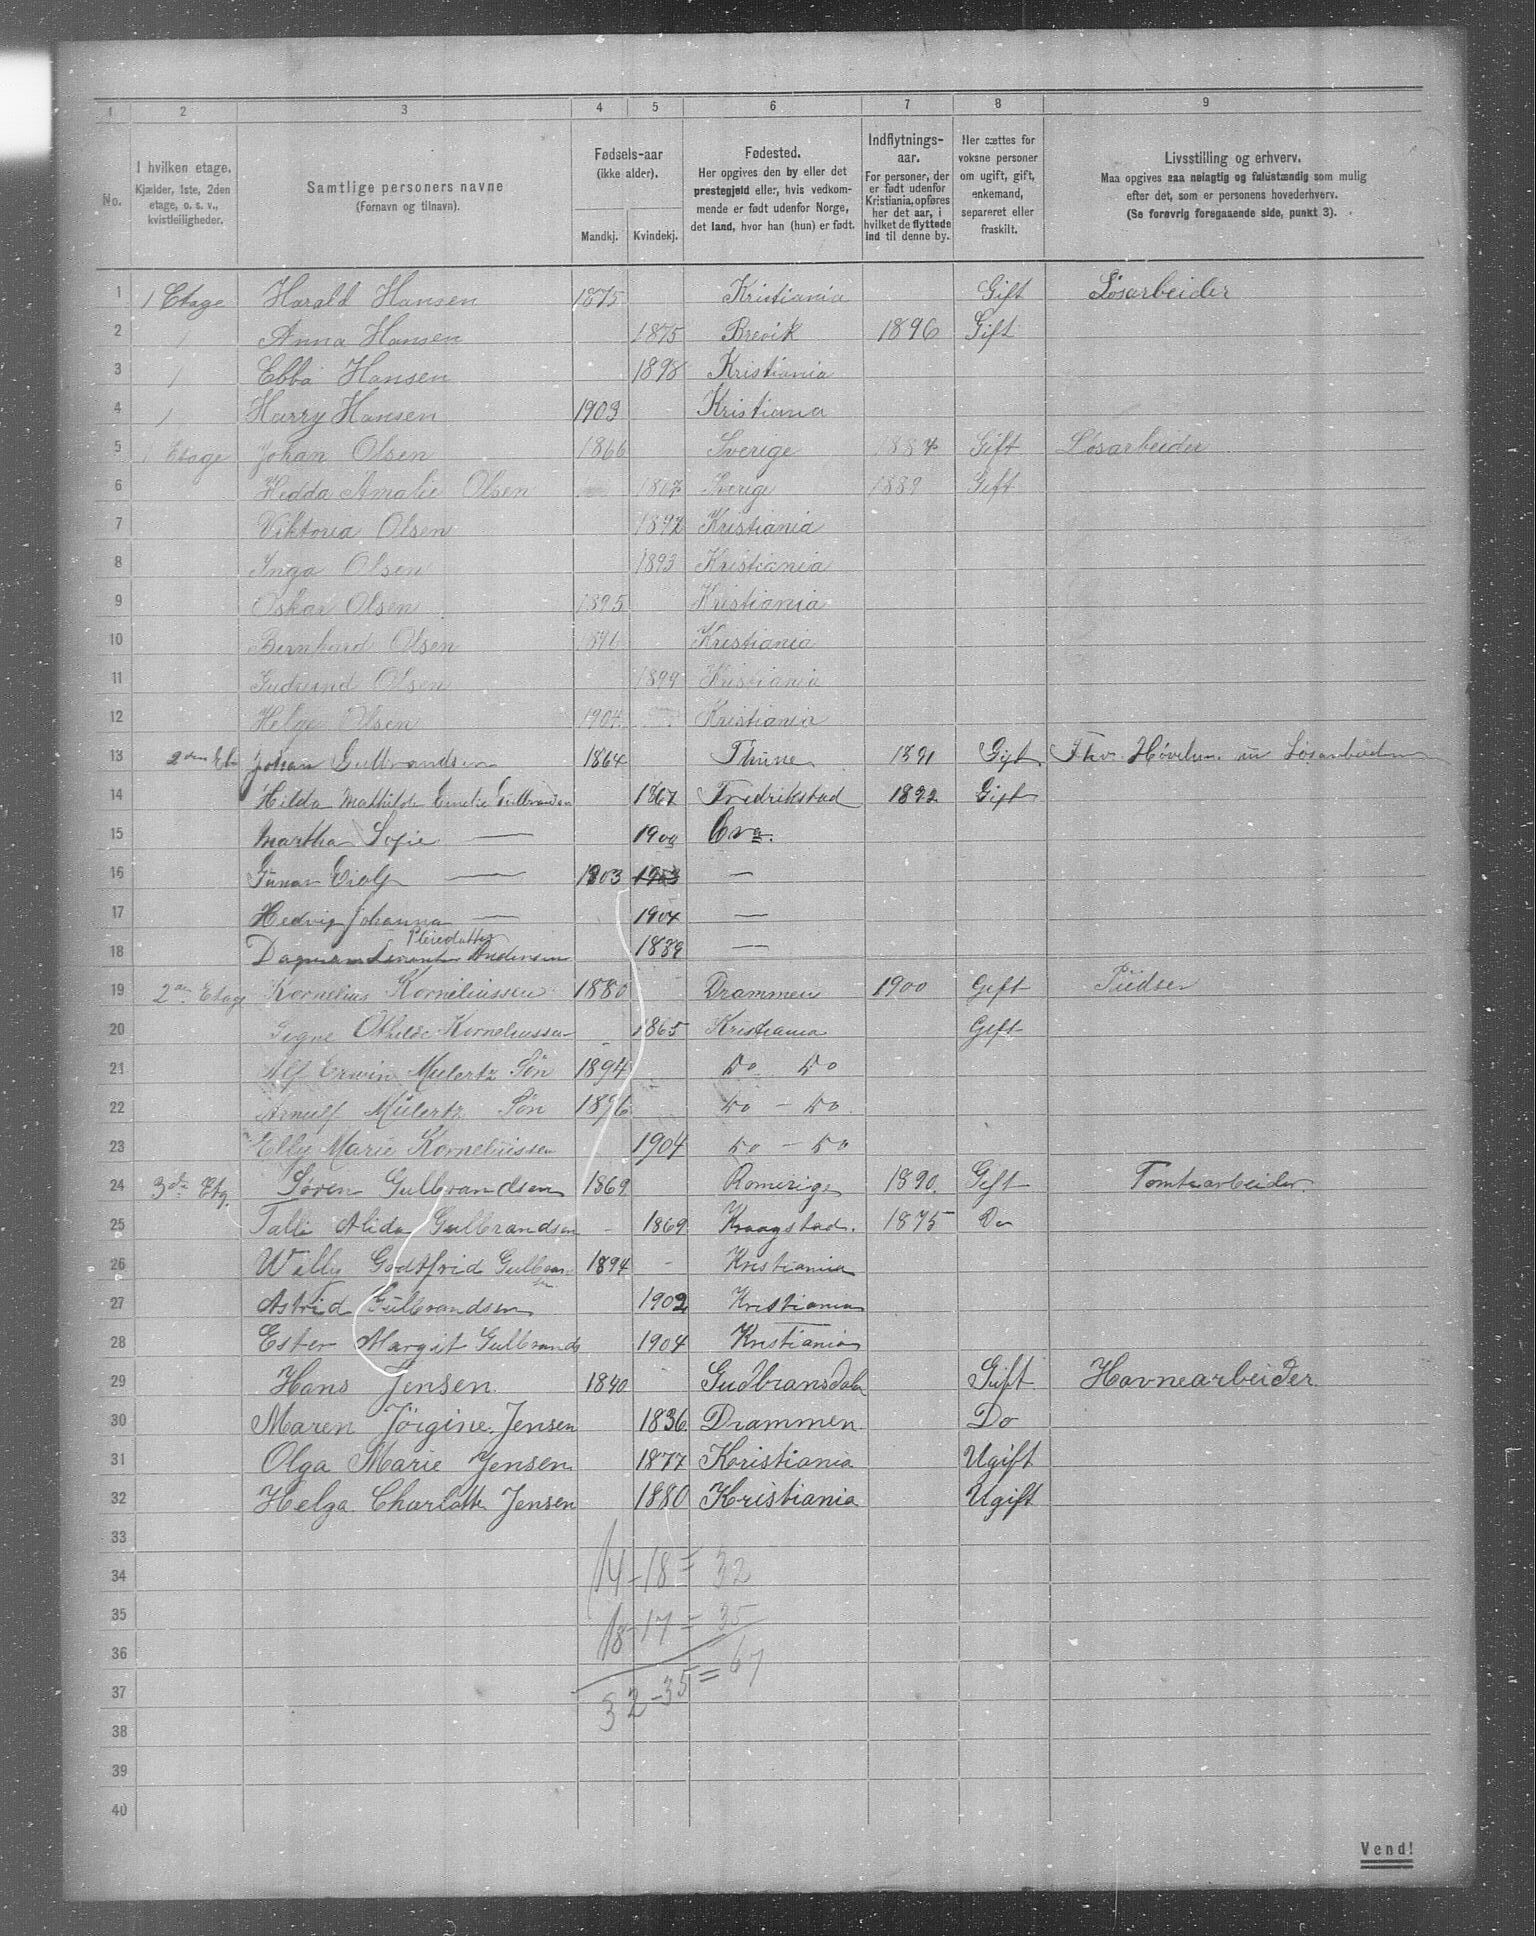 1 2 3 4 5 6 7 8 9
No.
I hvilken etage.
Kjælder, 1ste, 2den
etage, o. s. v.,
kvistleiligheder.
Samtlige personers navne
(Fornavn og tilnavn).
Fødsels-aar
(ikke alder).
Mandkj. Kvindekj.
Fødested.
Her opgives den by eller det
prestegjeld eller, hvis vedkom-
mende er født udenfor Norge,
det land, hvor han (hun) er født.
Indflytnings-
aar.
For personer, der
er født udenfor
Kristiania, opføres
her det aar, i
hvilket de flyttede
ind til denne by.
Her sættes for
voksne personer
om ugift, gift,
enkemand,
separeret eller
fraskilt.
Livsstilling og erhverv.
Maa opgives saa nøiagtig og fuldstændig som mulig
efter det, som er personens hovederhverv.
(Se forøvrig foregaaende side, punkt 3).
1 1 Etage Harald Hansen 1875 Kristiania Gift Løsarbeider
2 1 Anna Hansen 1875 Brevik 1896 Gift
3 1 Ebba Hansen 1898 Kristiania
4 1 Harry Hansen 1903 Kristiana
5 1 Etage Johan Olsen 1866 Sverige 1887 Gift Løsarbeider
6 Hedda Amalie Olsen Sverige 1889 Gift
7 Viktoria Olsen 1892 Kristiania
8 Inga Olsen 1893 Kristiania
9 Oskar Olsen 1895 Kristiania
10 Bernhard Olsen 1896 Kristiania
11 Gudrund Olsen 1899 Kristiania
12 Helge Olsen 1904 Kristiania
13 2den Et Johan Gulbrandsen 1864 Thune 1891 Gift Løsarbeider
14 Hilda Mathilde Emelie Gulbrandsen 1867 Fredrikstad 1892 Gift
15 Martha Sofie — 1900 Cra.
16 Gunar Eiolf — 1903 1903 —
17 Hedvig Johanna — 1904 —
18 Pleiedatter Andersen 1889 —
19 2den Etage Kornelius Korneliussen 1880 Drammen 1900 Gift Pudser
20 Signe Othilde Korneliussen 1865 Kristiania Gift
21 Alf Erwin Mulertz Søn 1894 Do Do
22 Arnulf Mülertz Søn 1896 Do — Do
23 Elly Marie Korneliussen 1904 Do — Do
24 3de Etg. Søren Gulbrandsen 1869 Romerige 1890. Gift Tomtearbeider.
25 Talle Alida Gulbrandsen - 1869 Kraagstad. 1875 Do
26 Willy Godtfrid Gulbransen 1894 - Kristiania
27 Astrid Gulbrandsen 1902 Kristiania
28 Ester Margit Gulbrands 1904 Kristiania
29 Hans Jensen. 1840 Gudbransdalen Gift Havnearbeider
30 Maren Jørgine. Jensen 1836. Drammen. Do
31 Olga Marie Jensen. 1877 Kristiania Ugift
32 Helga Charlotte Jensen 1880 Kristiania Ugift
33
34 14-18 = 32
35 18-17 = 35
36
37 32-35 = 67
38
39
40
Vend!